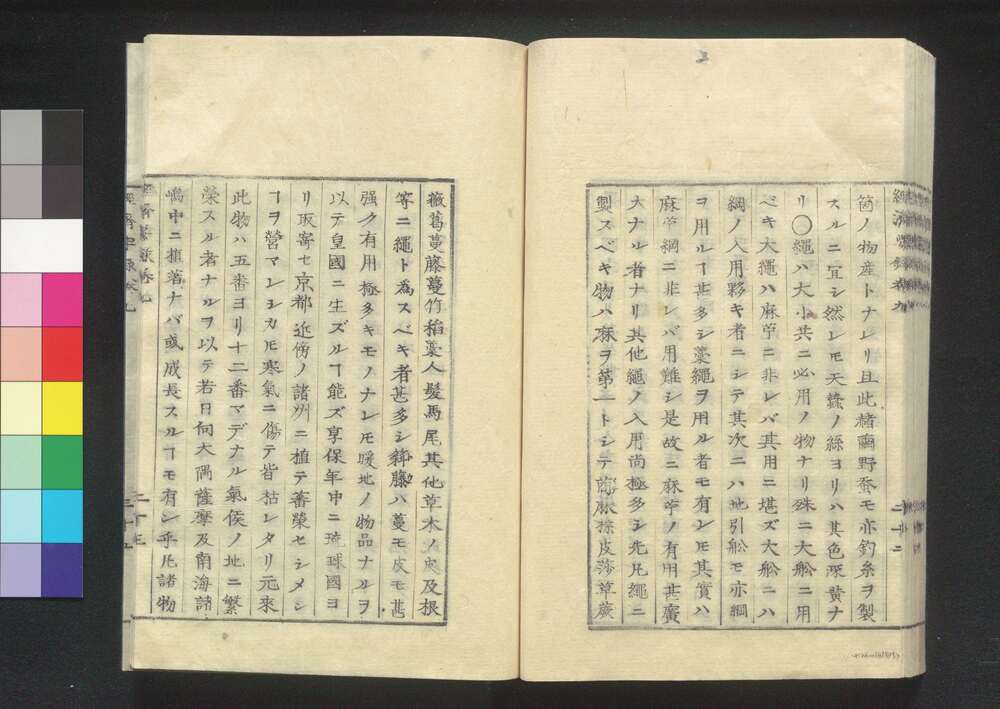 箇ノ物産トナレリ且此赭繭野蚕モ亦釣糸ヲ製
スルニ宜シ然レモ天蠶ノ絲ヨリハ其色琢黄ナ
リ〇繩ハ大小共ニ必用ノ物ナリ殊ニ大舩ニ用
ベキ大繩ハ麻苧ニ非レバ其用ニ堪ズ大舩ニハ
綱ノ入用夥キ者ニシテ其次ニハ地引舩モ亦綱
ヲ用ルヿ甚多シ藁繩ヲ用ル者モ有レモ其實ハ
麻苧綱ニ非レバ用難シ是故ニ麻苧ノ有用甚廣
大ナル者ナリ其他繩ノ入用尚極多シ先凡繩ニ
製スベキ物ハ麻ヲ第一トシテ麻椶皮莎草廣
薇葛蔓藤蔓竹稲藁人髮馬尾其他草木ノ皮及根
等ニ繩ト為スベキ者甚多シ藤ハ蔓モ皮モ甚
强ク有用極多キモノナレモ暖地ノ物品ナルヲ
以テ皇國ニ生ズルヿ能ズ享保年中ニ琉球國ヨ
リ取寄セ京都近傍ノ諸州ニ植テ蕃榮セシメン
ヿヲ營マレシカモ寒氣ニ傷テ皆枯レタリ元來
此物ハ五番ヨリ十二番マデナル氣候ノ地ニ繁
榮スル者ナルヲ以テ若日向大隅薩摩及南海諸
嶋中ニ植著ナバ或成長スルヿモ有ン乎凡諸物